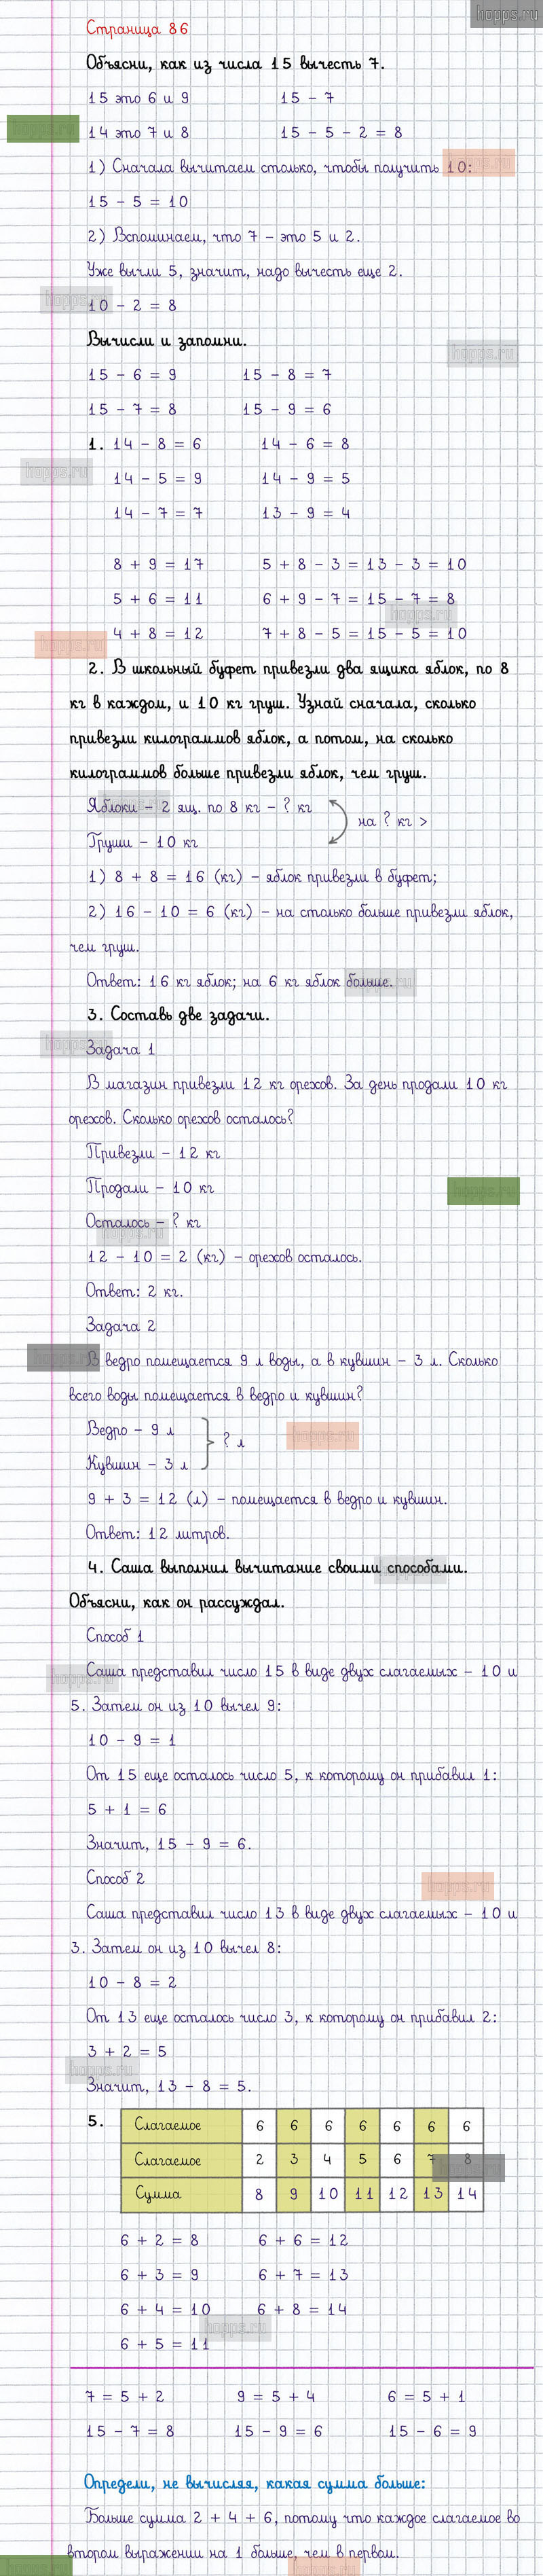 hopps.ru
Страница 86
Объясни, как из числа 15 вычесть 7.
15 это 6 и 9 15 - 7
14 это 7 и 8 15 - 5 - 2 = 8
1) Сначала вычитаем столько, чтобы получить 10:
15 - 5 = 10
2) Вспоминаем, что 7 - это 5 и 2.
Уже вычли 5, значит, надо вычесть еще 2.
10 - 2 = 8
Вычисли и запомни.
15 - 6 = 9 15 - 8 = 7
15 - 7 = 8 15 - 9 = 6
1. 14 - 8 = 6 14 - 6 = 8
14 - 5 = 9 14 - 9 = 5
14 - 7 = 7 13 - 9 = 4
8 + 9 = 17 5 + 8 - 3 = 13 - 3 = 10
5 + 6 = 11 6 + 9 - 7 = 15 - 7 = 8
4 + 8 = 12 7 + 8 - 5 = 15 - 5 = 10
2. В школьный буфет привезли два ящика яблок, по 8
кг в каждом, и 10 кг груш. Узнай сначала, сколько
привезли килограммов яблок, а потом, на сколько
килограммов больше привезли яблок, чем груш.
Яблоки - 2 ящ. по 8 кг - ? кг
на ? кг >
Груши - 10 кг
1) 8 + 8 = 16 (кг) - яблок привезли в буфет;
2) 16 - 10 = 6 (кг) - на столько больше привезли яблок,
чем груш.
Ответ: 16 кг яблок; на 6 кг яблок больше.
3. Составь две задачи.
Задача 1
В магазин привезли 12 кг орехов. За день продали 10 кг
орехов. Сколько орехов осталось?
Привезли - 12 кг
Продали - 10 кг
Осталось - ? кг
12 - 10 = 2 (кг) - орехов осталось.
Ответ: 2 кг.
Задача 2
В ведро помещается 9 л воды, а в кувшин - 3 л. Сколько
всего воды помещается в ведро и кувшин?
Ведро - 9 л
? л
Кувшин - 3 л
9 + 3 = 12 (л) - помещается в ведро и кувшин.
Ответ: 12 литров.
4. Саша выполнил вычитание своими способами.
Объясни, как он рассуждал.
Способ 1
Саша представил число 15 в виде двух слагаемых - 10 и
5. Затем он из 10 вычел 9:
10 - 9 = 1
От 15 еще осталось число 5, к которому он прибавил 1:
5 + 1 = 6
Значит, 15 - 9 = 6.
Способ 2
Саша представил число 13 в виде двух слагаемых - 10 и
3. Затем он из 10 вычел 8:
10 - 8 = 2
От 13 еще осталось число 3, к которому он прибавил 2:
3 + 2 = 5
Значит, 13 - 8 = 5.
5. Слагаемое 6 6 6 6 6 6 6
Слагаемое 2 3 4 5 6 7 8
Сумма 8 9 10 11 12 13 14
6 + 2 = 8 6 + 6 = 12
6 + 3 = 9 6 + 7 = 13
6 + 4 = 10 6 + 8 = 14
6 + 5 = 11
7 = 5 + 2 9 = 5 + 4 6 = 5 + 1
15 - 7 = 8 15 - 9 = 6 15 - 6 = 9
Определи, не вычисляя, какая сумма больше:
Больше сумма 2 + 4 + 6, потому что каждое слагаемое во
втором выражении на 1 больше, чем в первом.